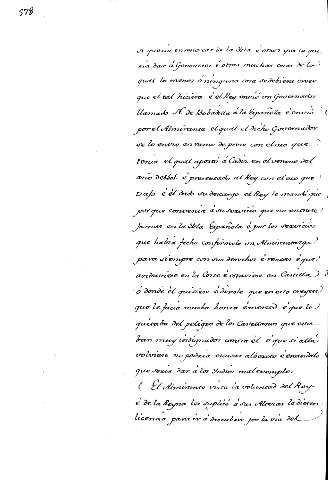 578
si queria enseñorear de la Isla é otros que la que
ria dar á Genoveses é otras muchas cosas de lo
qual la menos ó ninguna cosa se debiera creer
que el tal hiciera é el Rey envió un Governador
llamado F.º de Bobadilla á la Española é envió
por el Almirante el qual el dicho Governador
se lo envió en son de preso con el oro que
tenia el qual aportó á Cadiz en el verano del
año de 1501 é presentado al Rey con el oro que
traia é él dado su descargo el Rey le mandó que
por que convenia á su servicio que no entrase
jamas en la Isla Española é por los servicios
que habia fecho confirmole su Almirantazgo
para siempre con sus derechos é rentas é que
anduviese en la Corte é estuviese en Castilla
ó donde él quisiere é dixole que en esto creyese
que le facia mucha honra é merced é que le
quitaba del peligro de los Castellanos que esta
ban muy indignados contra él ó que si allá
volviese no podria escusar alboroto é escandalo
que seria dar á los Indios mal exemplo.
El Almirante vista la voluntad del Rey
é de la Reyna les suplicó á sus Altezas le diesen
licencia para ir á descubrir por la via del